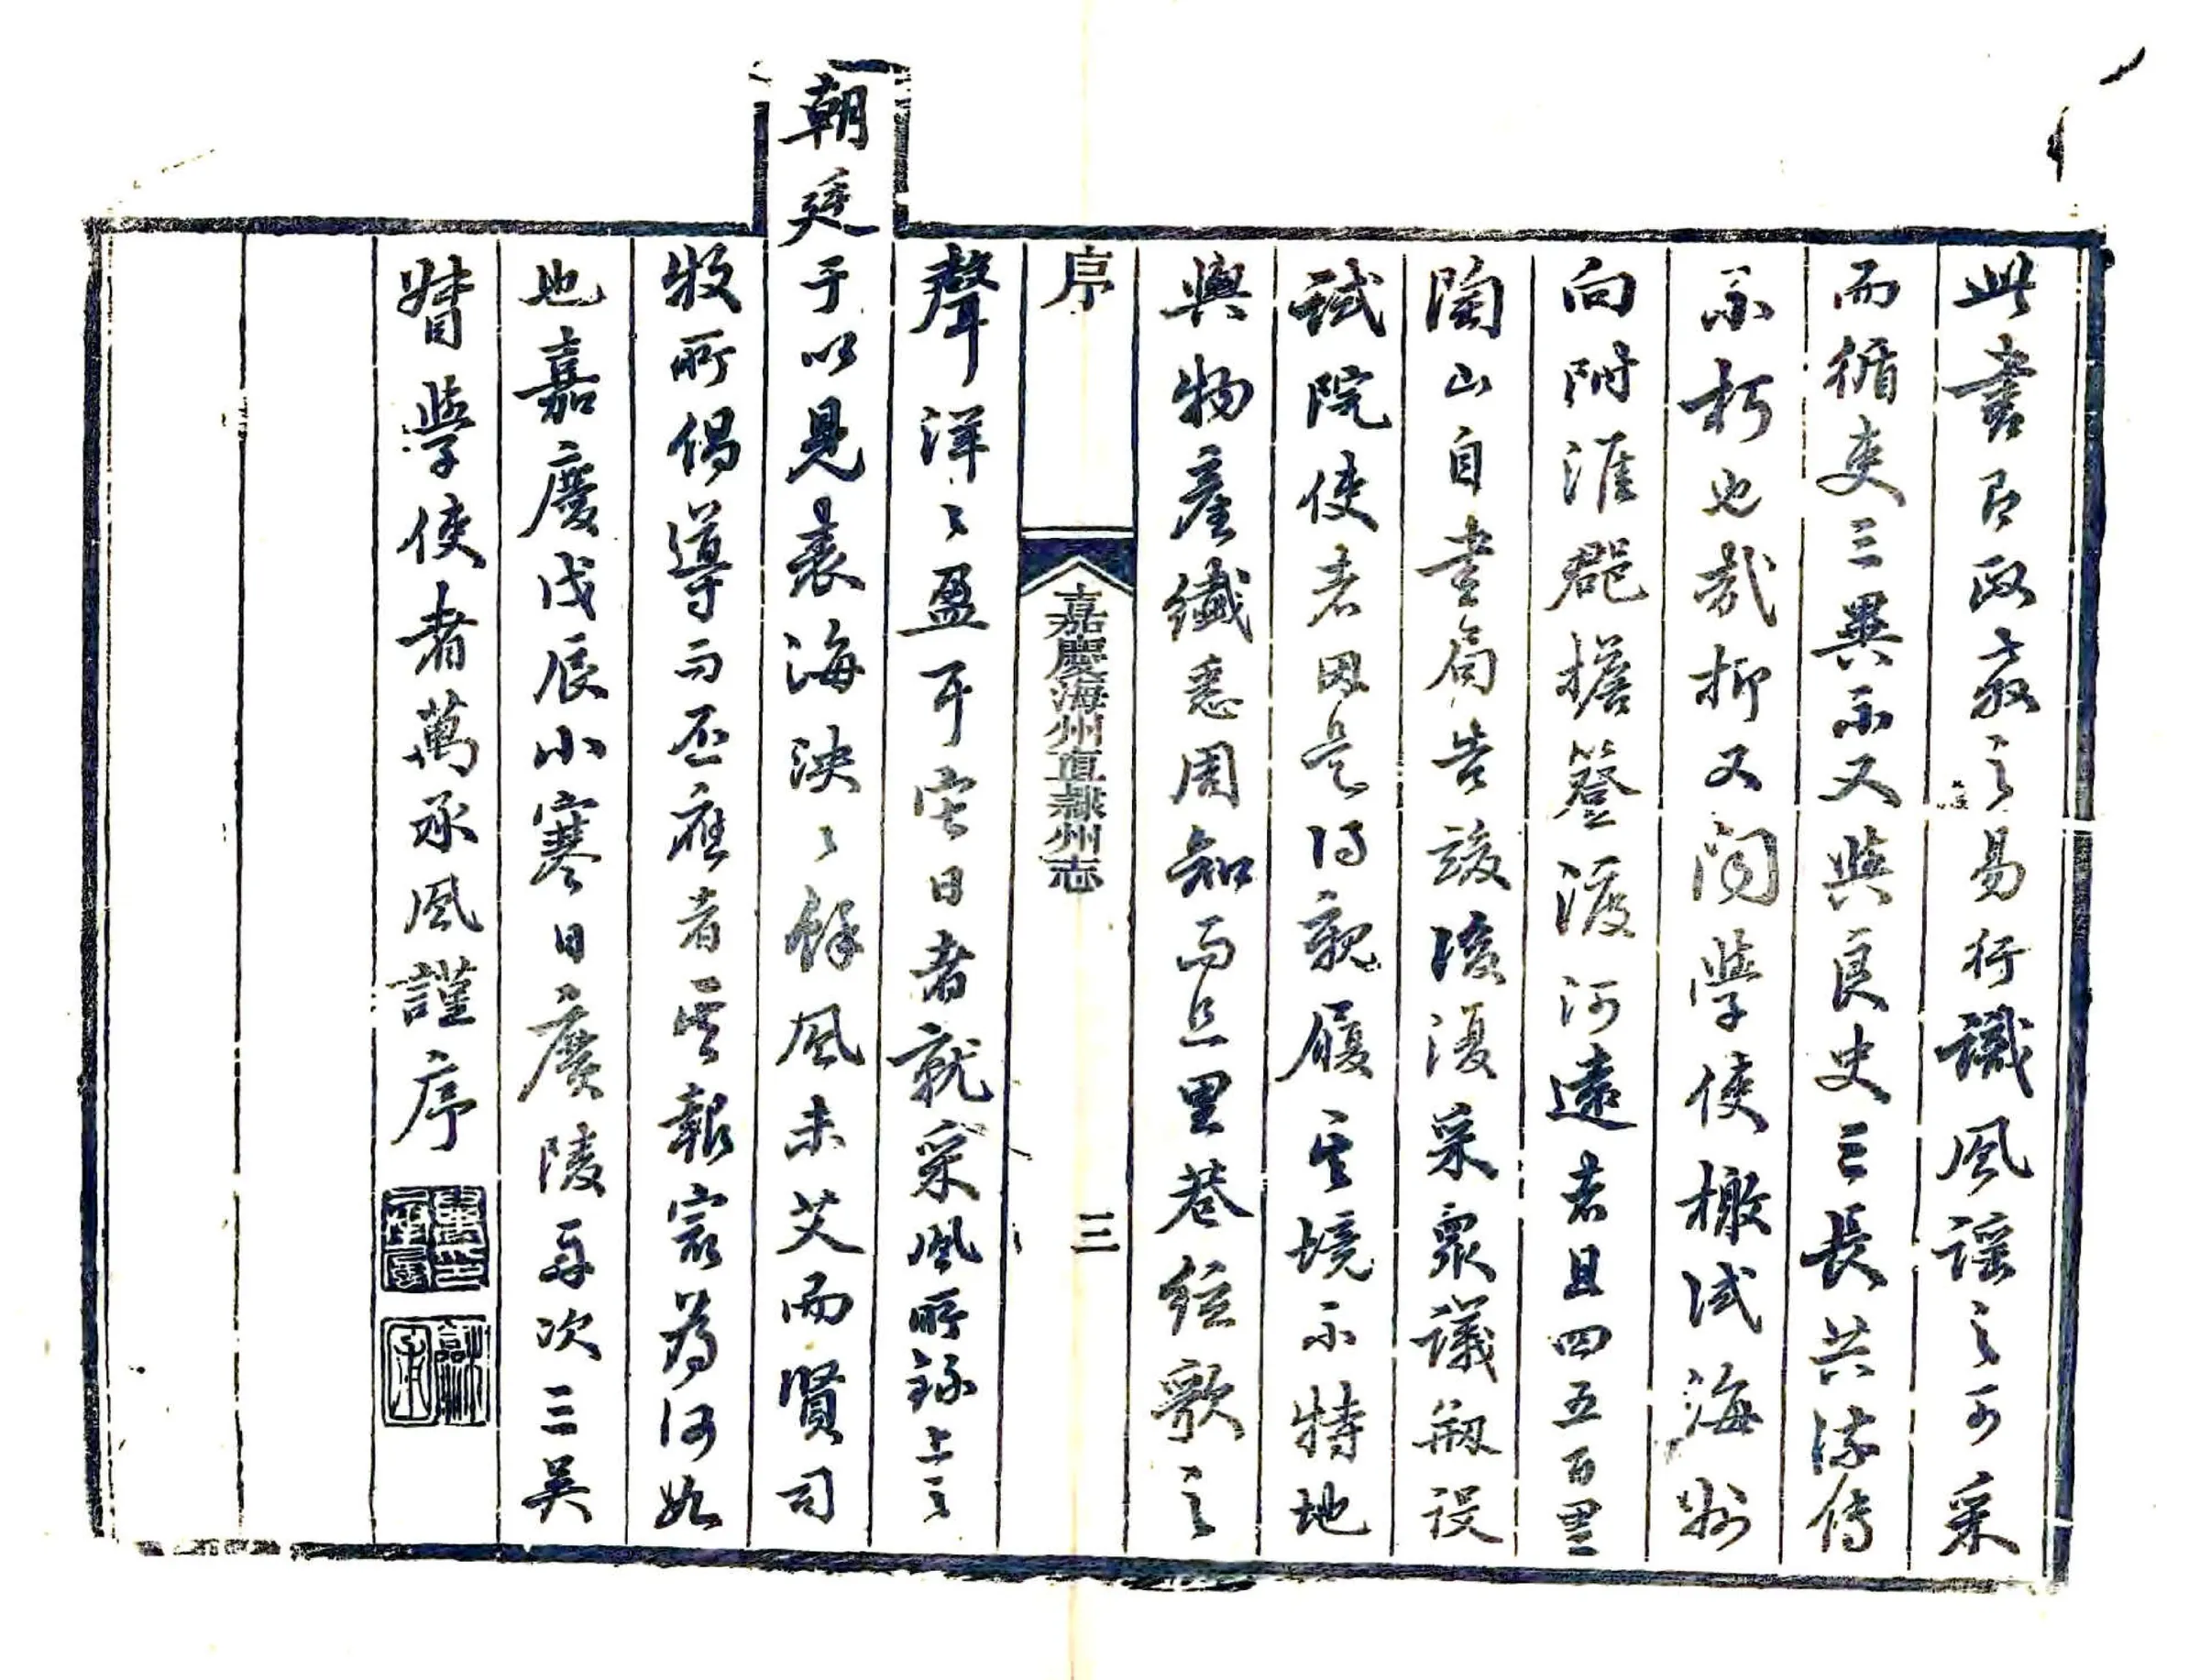 此書即政教之易行識風謠之可采
而循吏三異不又與良史三長共流傳
不朽也哉抑又聞學使檄試海州
向附淮郡擔簦渡河遠者且四五百里
陶山自書局告竣後復采衆議剏設
試院使者因是得親履其境不特地
與物產纖悉周知而且里巷絃歌之
序
嘉慶海州直隸州志
三
聲洋〻盈耳它日者就采風所錄上之
朝廷于以見表海泱〻餘風未艾而賢司
牧所倡導而丕應者其報宬為何如
也嘉慶戊辰小寒日廣陵舟次三吳
督學使者萬承風謹序